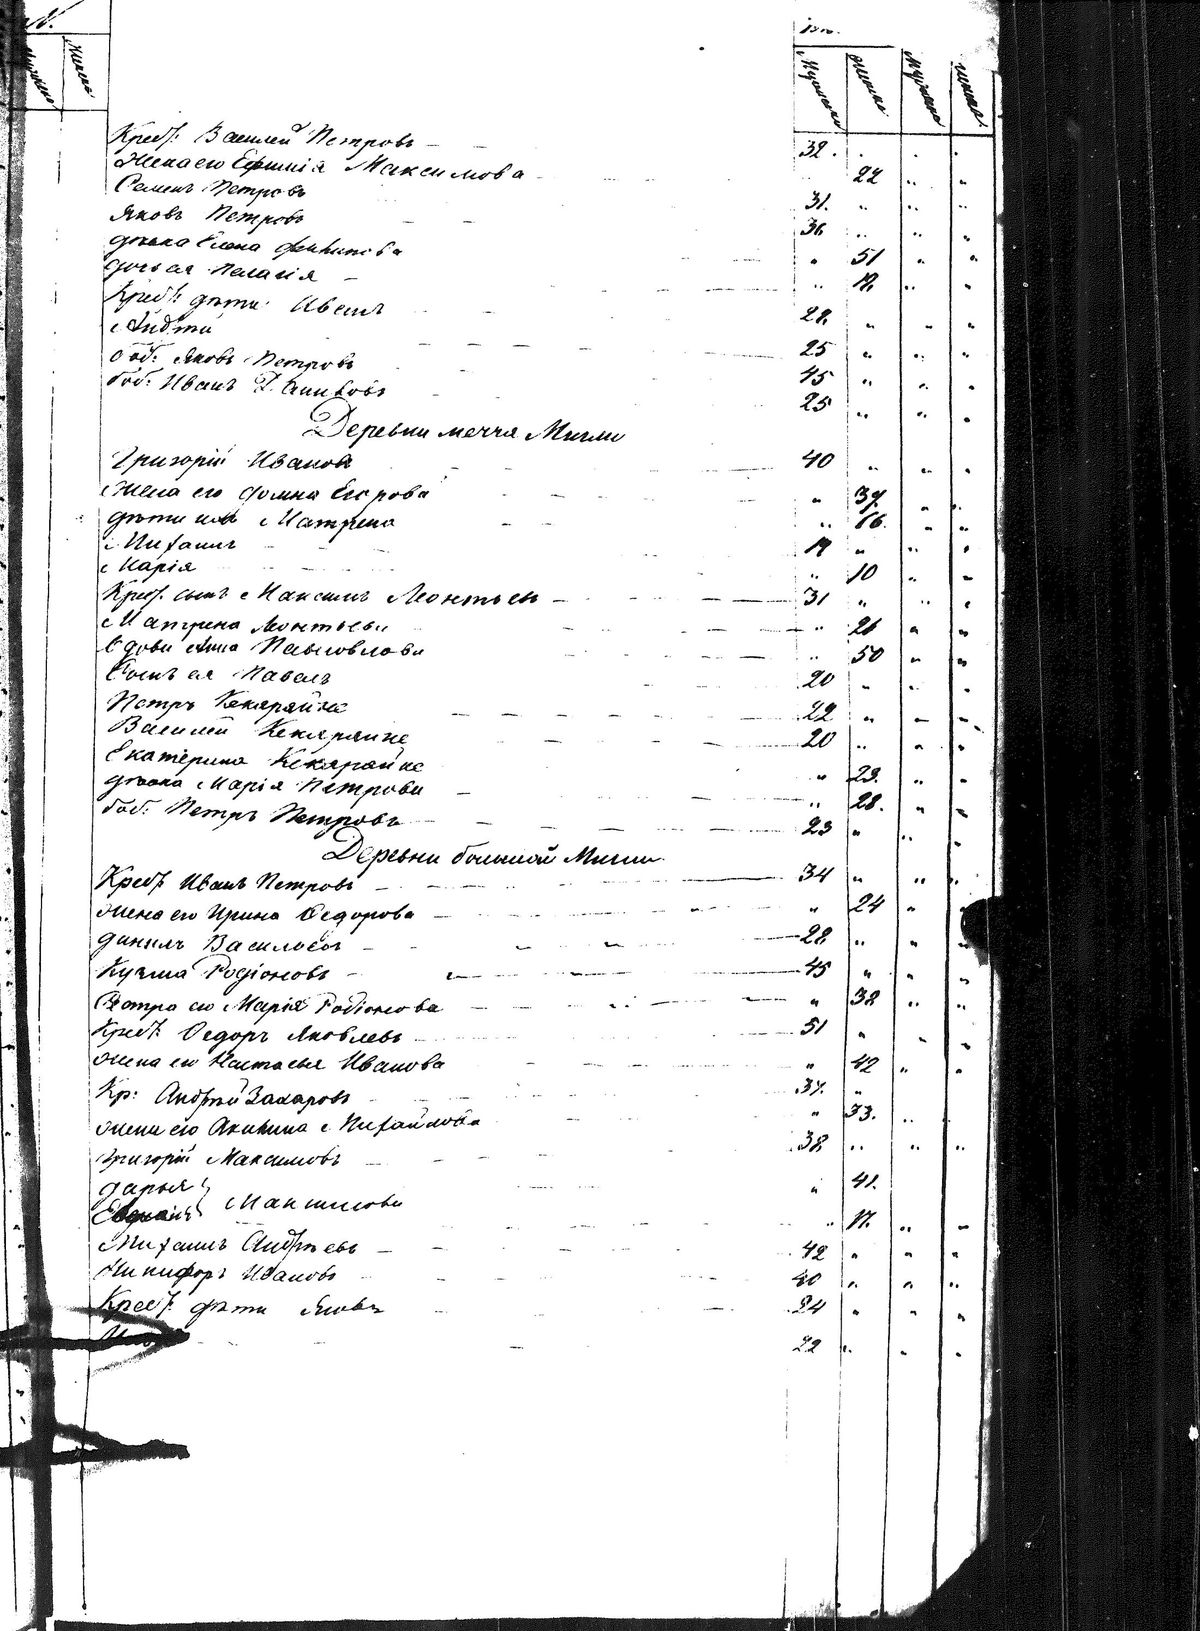 Мужеска
женска
мужеска
женска
Крест: Василей Петровъ 32
Жена его Ефимія Максимова 22
Семенъ Петровъ 31
Яковъ Петровъ 36
Елена 51
дочь ея Пелагія
Крест: дети Иванъ 28
25
боб: Яковъ Петровъ 45
боб: Иванъ 25
Деревни Мигли
Григорій Ивановъ 40
Жена его Домна Егорова 37
дети ихъ Матрена 16
Михаилъ 19
Марія 10
Крест. сынъ Максимъ Леонтьевъ 31
Матрена Леонтьева 26
Вдова Анна 50
Сынъ ея Павелъ 20
Петръ Кекяряйне 22
Василей Кекяряйне 20
Екатерина Кекяряйне 23
девка Марія Петрова 28
боб: Петръ Петровъ 23
Деревни большой Мигли
Крест: Иванъ Петровъ 34
жена его Ирина Федорова 24
Данилъ Васильевъ 28
Кузма Родіоновъ 45
Сестра его Марія Родіонова 38
Крест: Федоръ Яковлевъ 51
жена его Настасья Иванова 42
Кр: Андрей Захаровъ 37
жена его Акилина Михайлова 33
Григорій Максимовъ 38
Дарья 41
Максимовы
Михаилъ Андреевъ 42
Никифоръ Ивановъ 40
Крест: дети Яковъ 24
22